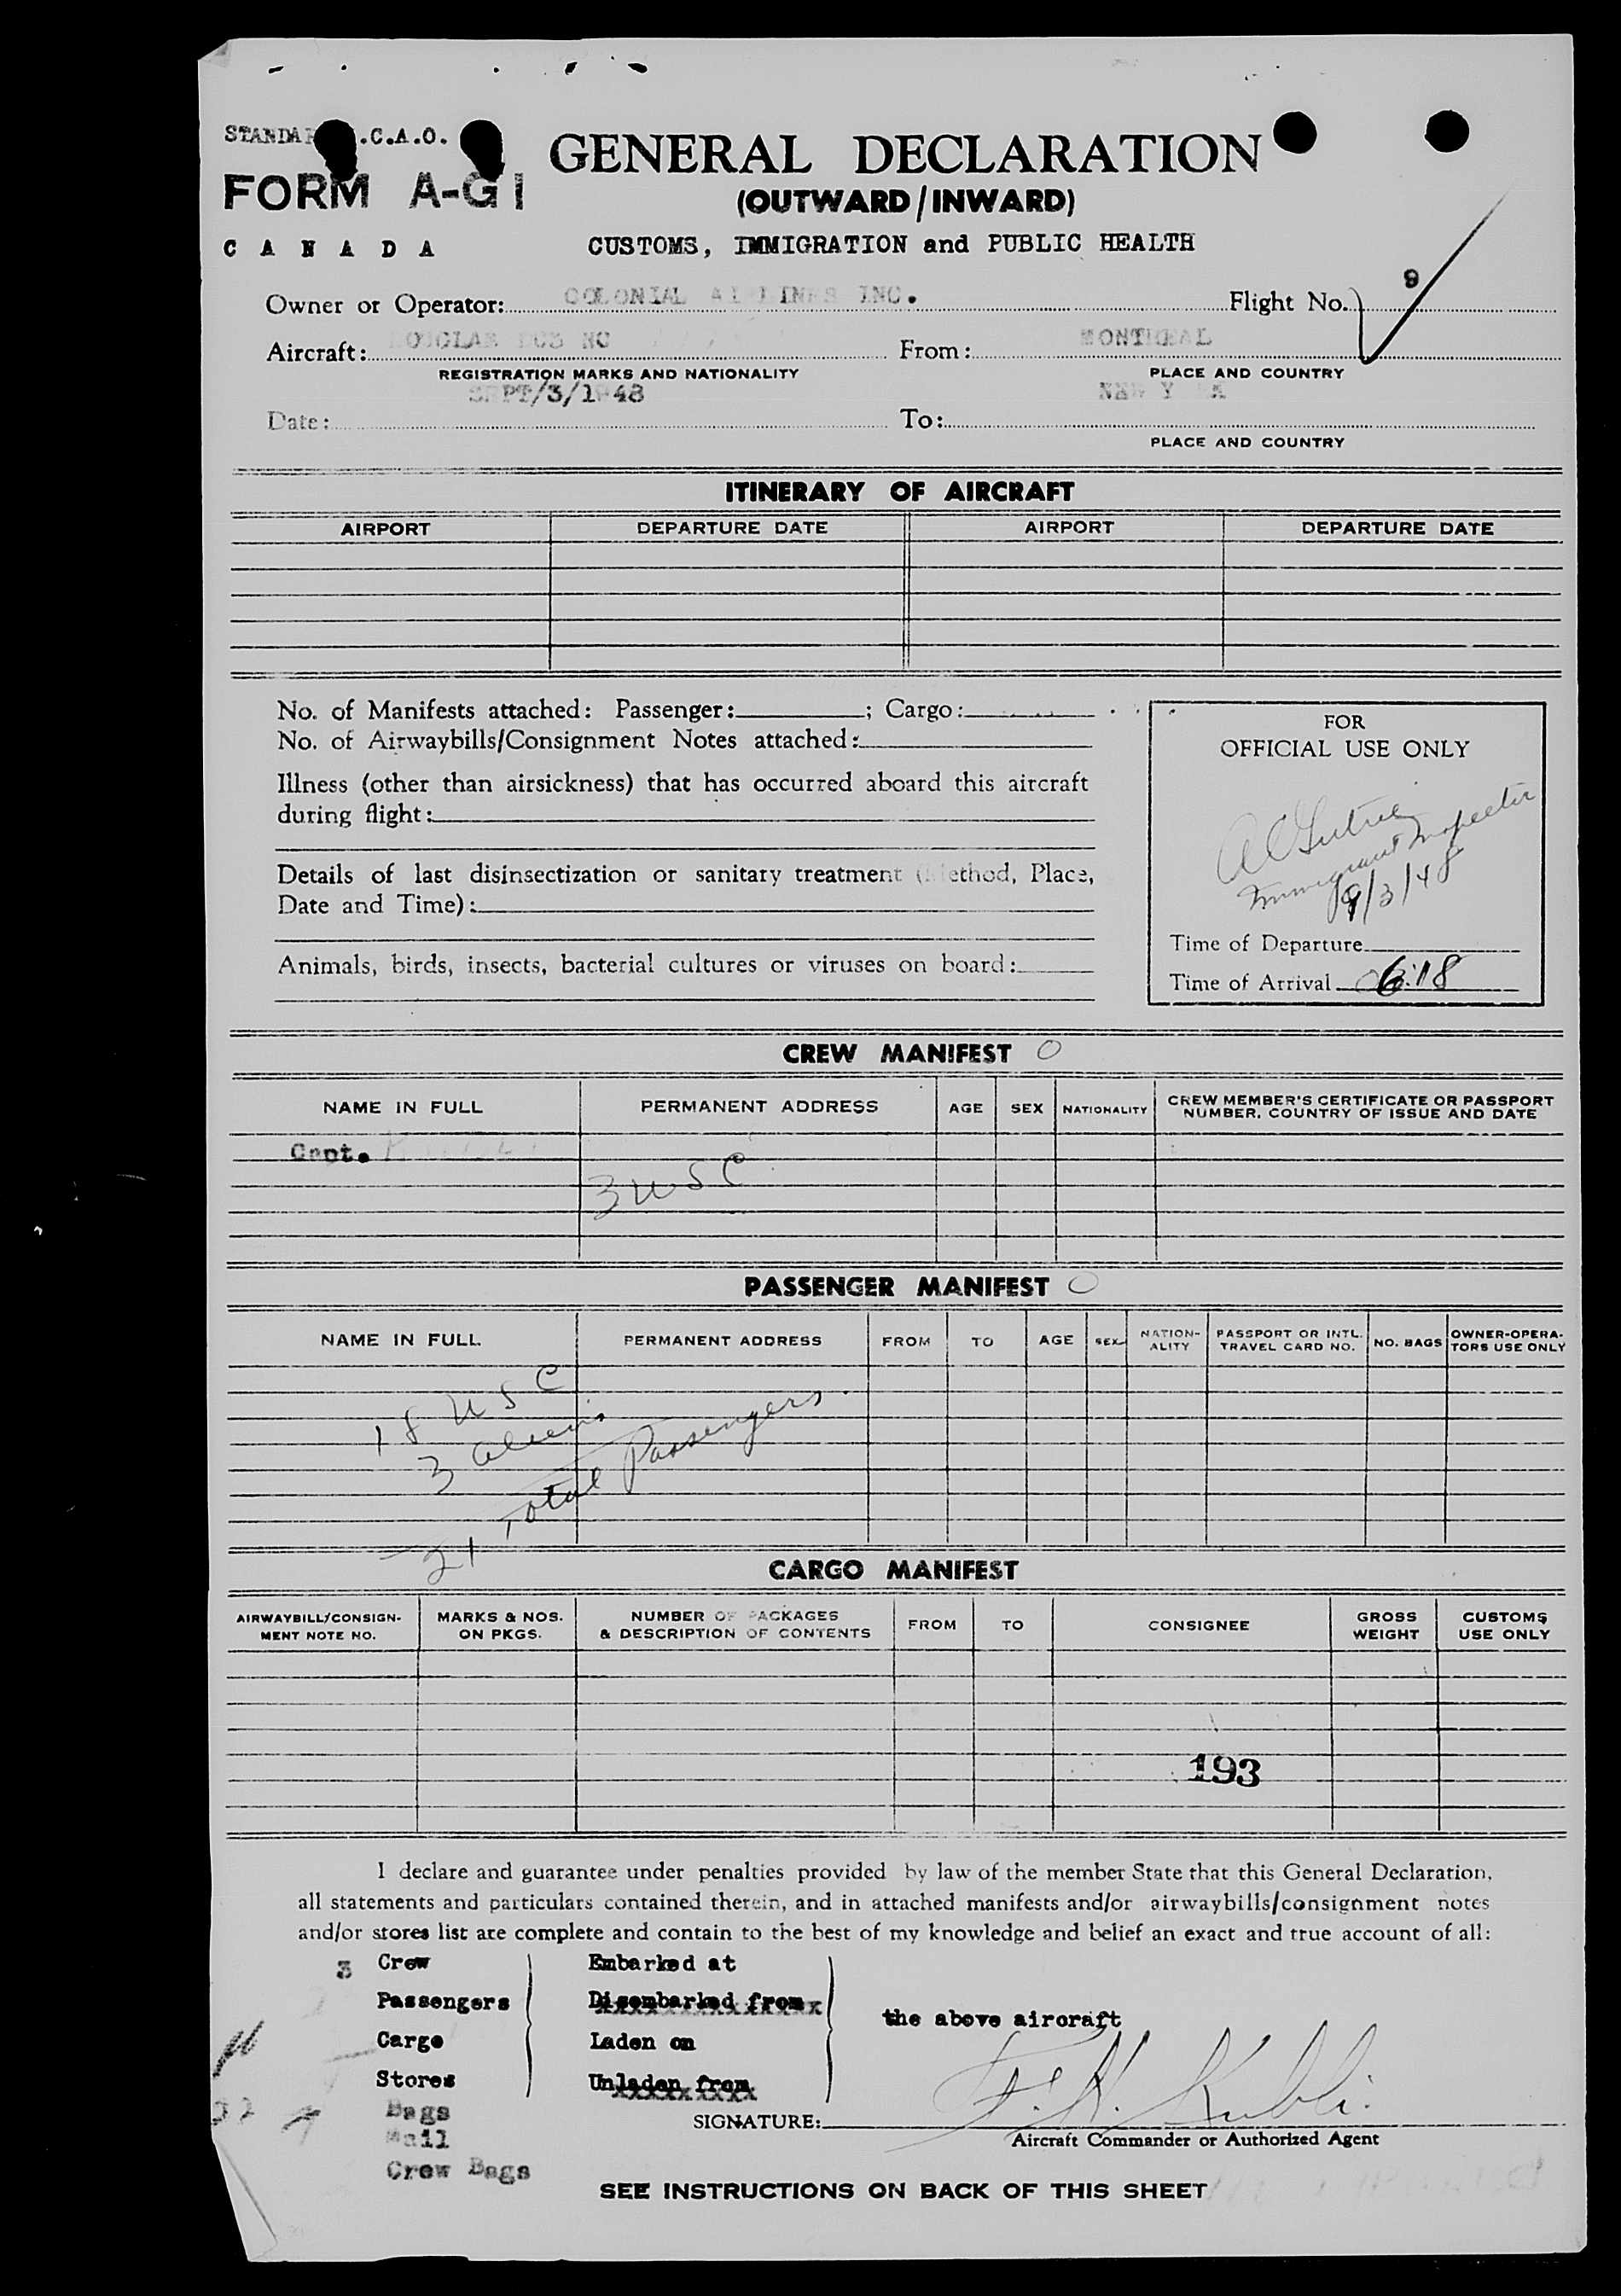 .C.A.O.
FORM A-G1
GENERAL DECLARATION
(OUTWARD/INWARD)
CANADA
CUSTOMS, IMMIGRATION and PUBLIC HEALTH
Owner or Operator: COLONIAL AIRLINES INC. Flight No. 9
Aircraft: From: MONTREAL
REGISTRATION MARKS AND NATIONALITY PLACE AND COUNTRY
Date: SEPT/3/1948 To: NEW YORK
PLACE AND COUNTRY
ITINERARY OF AIRCRAFT
AIRPORT DEPARTURE DATE AIRPORT DEPARTURE DATE
No. of Manifests attached: Passenger: ; Cargo:
No. of Airwaybills/Consignment Notes attached:
Illness (other than airsickness) that has occurred aboard this aircraft
during flight:
Details of last disinsectization or sanitary treatment (Method, Place,
Date and Time):
Animals, birds, insects, bacterial cultures or viruses on board:
FOR
OFFICIAL USE ONLY
Immigrant Inspector
9/3/48
Time of Departure
Time of Arrival 6:18
CREW MANIFEST
NAME IN FULL PERMANENT ADDRESS AGE SEX NATIONALITY CREW MEMBER'S CERTIFICATE OR PASSPORT NUMBER, COUNTRY OF ISSUE AND DATE
Capt.
3 USC
PASSENGER MANIFEST
NAME IN FULL PERMANENT ADDRESS FROM TO AGE SEX NATION-ALITY PASSPORT OR INTL. TRAVEL CARD NO. NO. BAGS OWNER-OPERA-TORS USE ONLY
18 USC
3 aliens
21 Total Passengers
CARGO MANIFEST
AIRWAYBILL/CONSIGN-MENT NOTE NO. MARKS & NOS. ON PKGS. NUMBER OF PACKAGES & DESCRIPTION OF CONTENTS FROM TO CONSIGNEE GROSS WEIGHT CUSTOMS USE ONLY
193
I declare and guarantee under penalties provided by law of the member State that this General Declaration,
all statements and particulars contained therein, and in attached manifests and/or airwaybills/consignment notes
and/or stores list are complete and contain to the best of my knowledge and belief an exact and true account of all:
3 Crew Embarked at
Passengers Disembarked from
the above aircraft
Cargo Laden on
Stores Unladen from
Bags
SIGNATURE: F. H. Kubli.
Mail
Aircraft Commander or Authorized Agent
Crew Bags
SEE INSTRUCTIONS ON BACK OF THIS SHEET